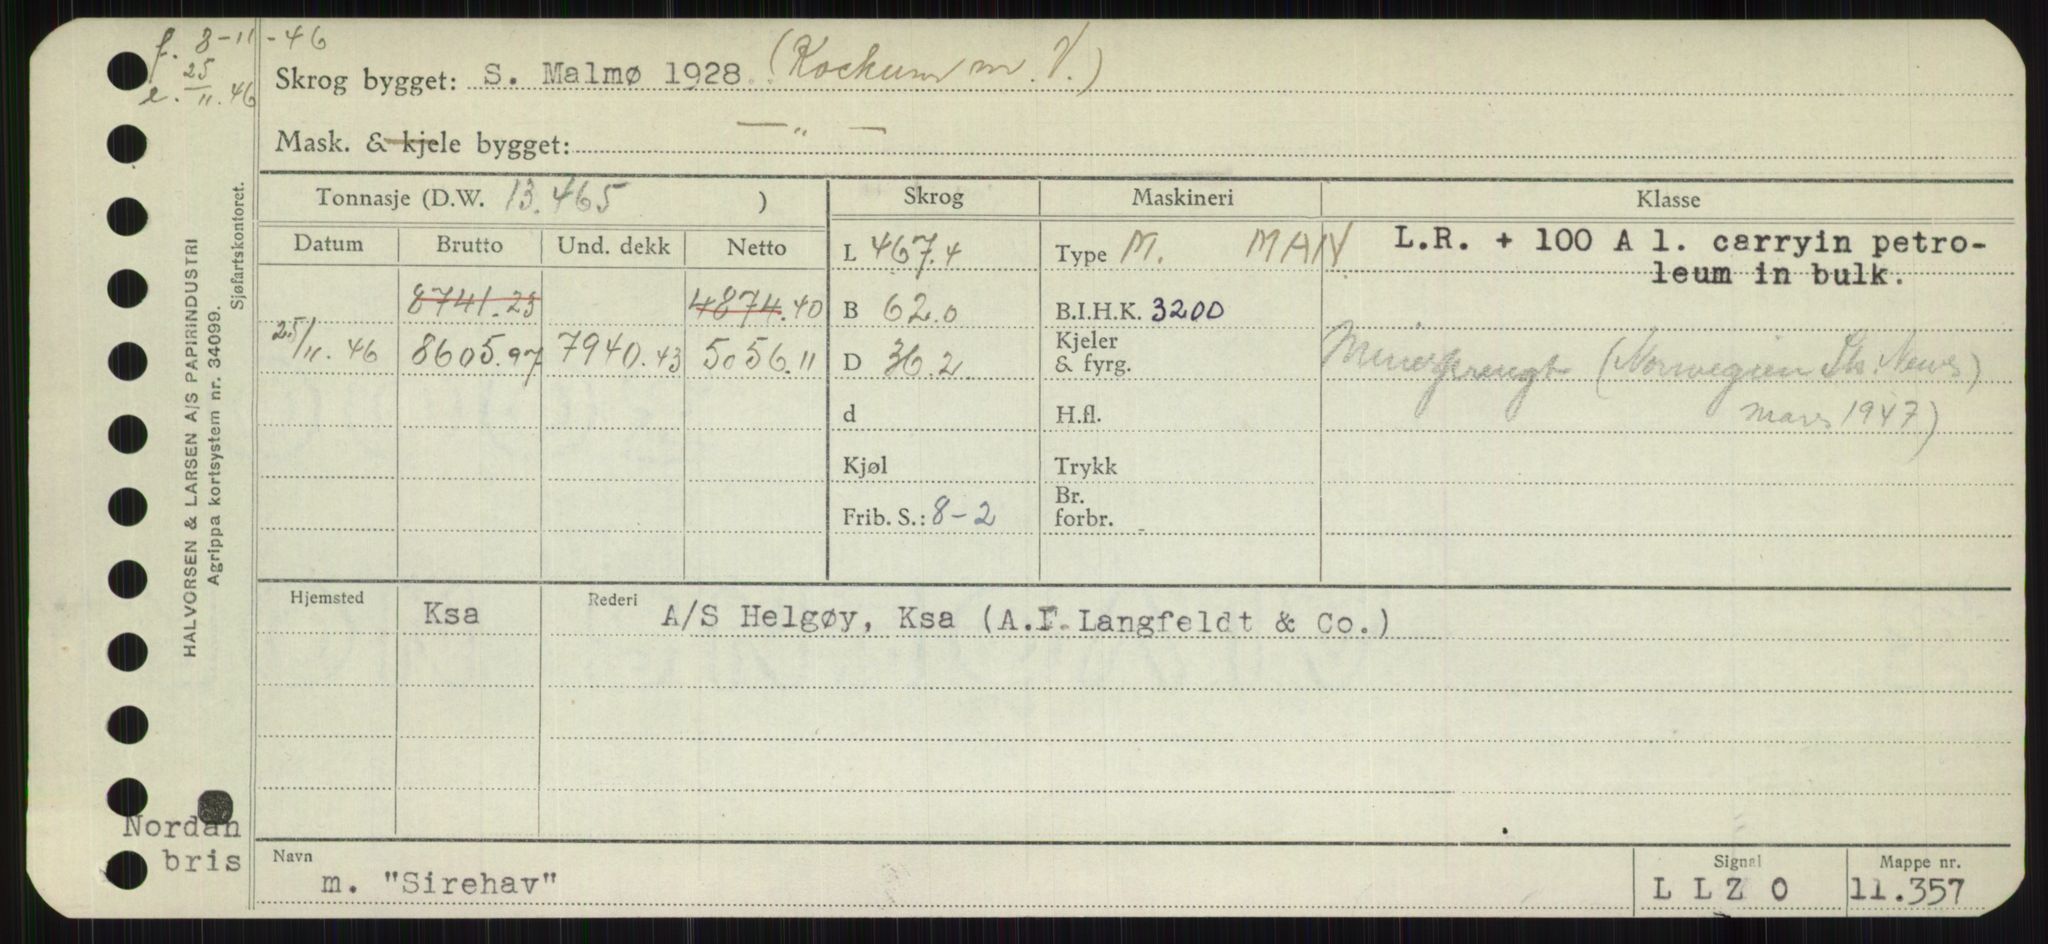 f. 8-11-46
e. 25/11.46
Skrog bygget: S. Malmø 1928. (Kockum m. V.)
Mask. & kjele bygget: — " —
Tonnasje (D.W. 13.465 )
Skrog
Maskineri
Klasse
Datum
Brutto
Und. dekk
Netto
8741.23
4874.40
25/11.46
8605.97
7940.43
5056.11
L 467.4
B 62.0
D 36.2
d
Kjøl
Frib. S.: 8-2
Type M. MAN
B.I.H.K. 3200
Kjeler
& fyrg.
H.fl.
Trykk
Br.
forbr.
L.R. + 100 A 1. carryin petro-
leum in bulk.
Minesprengt (Norwegian Sh. News)
mars 1947)
Hjemsted
Ksa
Rederi
A/S Helgøy, Ksa (A.F. Langfeldt & Co.)
HALVORSEN & LARSEN A/S PAPIRINDUSTRI
Agrippa kortsystem nr. 34099.
Sjøfartskontoret.
Nordan
bris
Navn
m. "Sirehav"
Signal
L L Z O
Mappe nr.
11.357